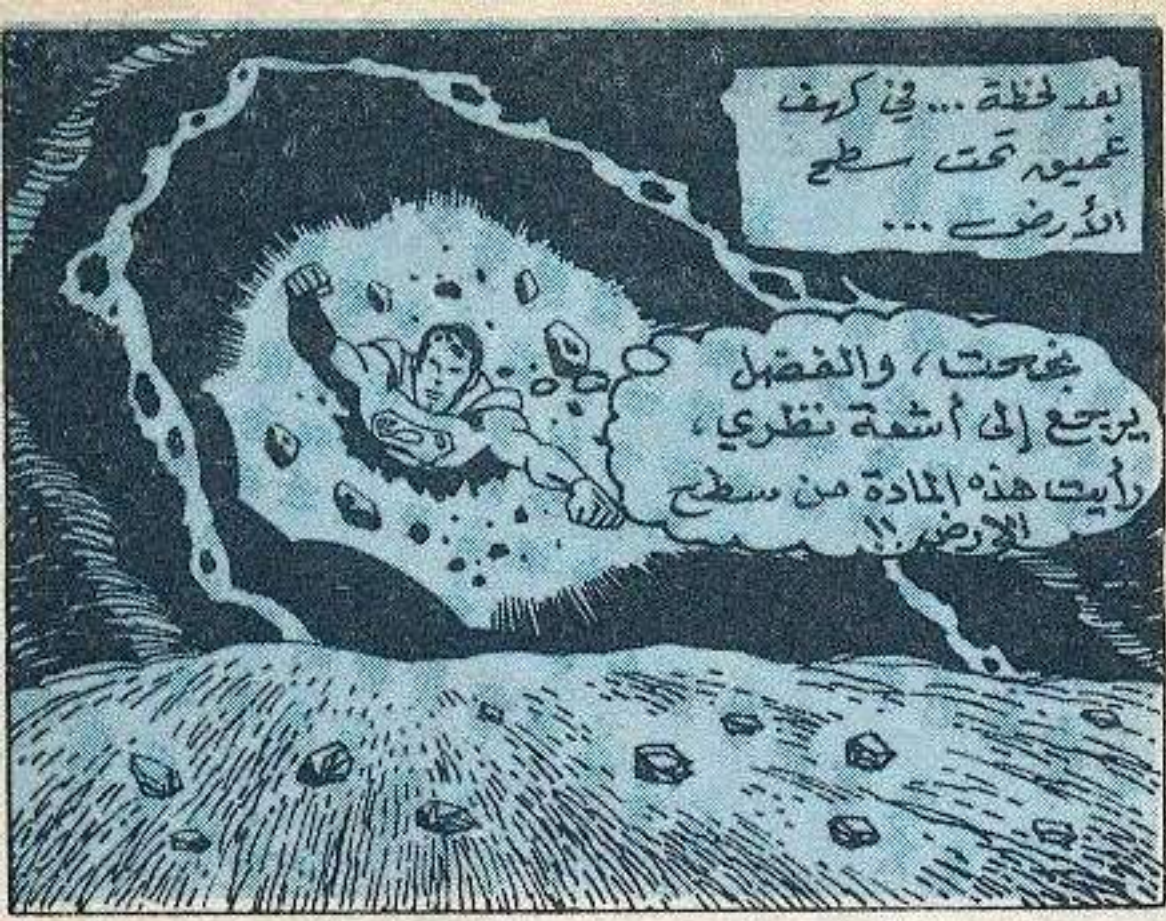 بعد لحظة ... في كهف
عميق تحت سطح
الأرض ...
نجحت، والفضل
يرجع إلى أشعة نظري،
رأيت هذه المادة من سطح
الارض !!